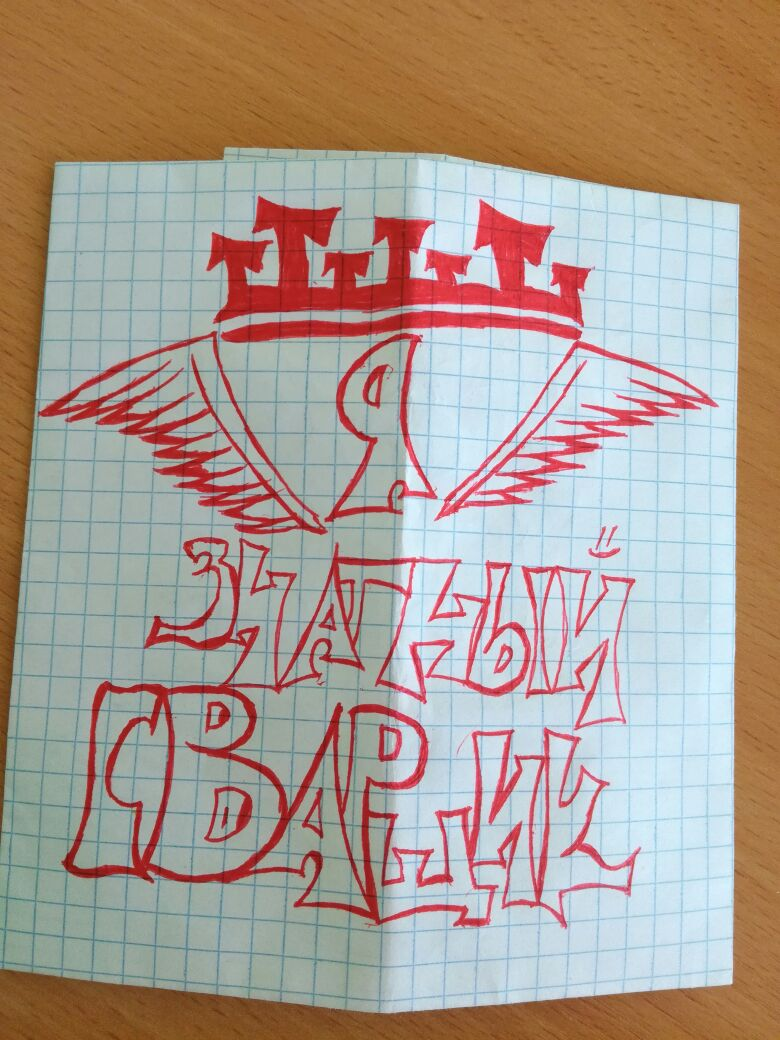 Я
ЗНАТНЫЙ
СВАРЩИК